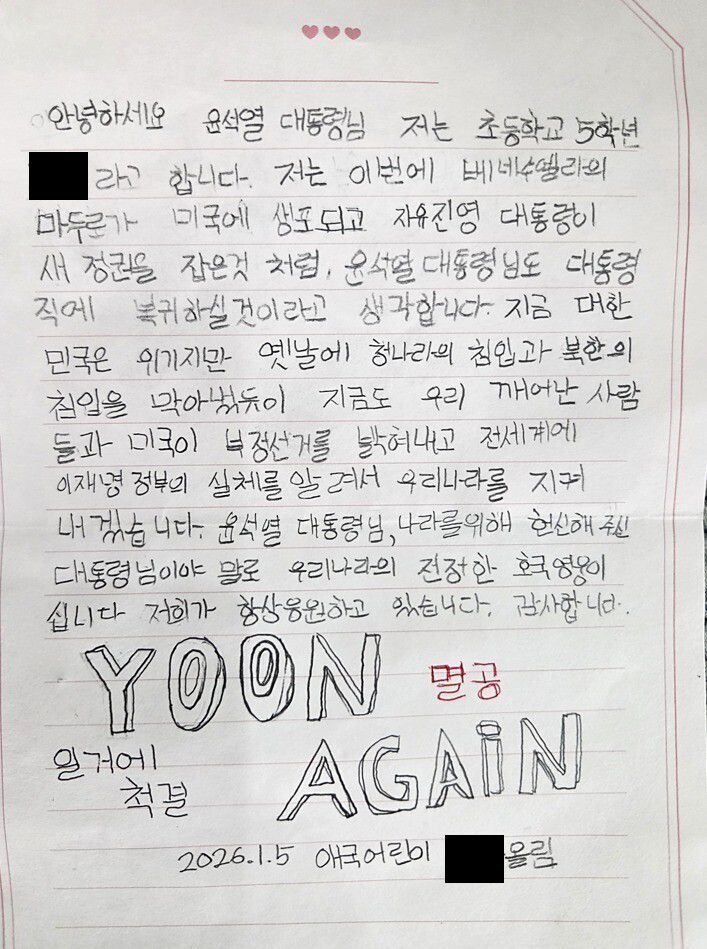 안녕하세요 윤석열 대통령님 저는 초등학교 5학년
라고 합니다. 저는 이번에 베네수엘라의
마두로가 미국에 생포되고 자유진영 대통령이
새 정권을 잡은것 처럼, 윤석열 대통령님도 대통령
직에 복귀하실것이라고 생각합니다. 지금 대한
민국은 위기지만 옛날에 청나라의 침입과 북한의
침입을 막아냈듯이 지금도 우리 깨어난 사람
들과 미국이 부정선거를 밝혀내고 전세계에
이재명 정부의 실체를 알려서 우리나라를 지켜
내겠습니다. 윤석열 대통령님, 나라를위해 헌신해 주신
대통령님이야 말로 우리나라의 진정한 호국영웅이
십니다 저희가 항상응원하고 있습니다. 감사합니다.
YOON 멸공
일거에
척결 AGAiN
2026.1.5 애국어린이 올림